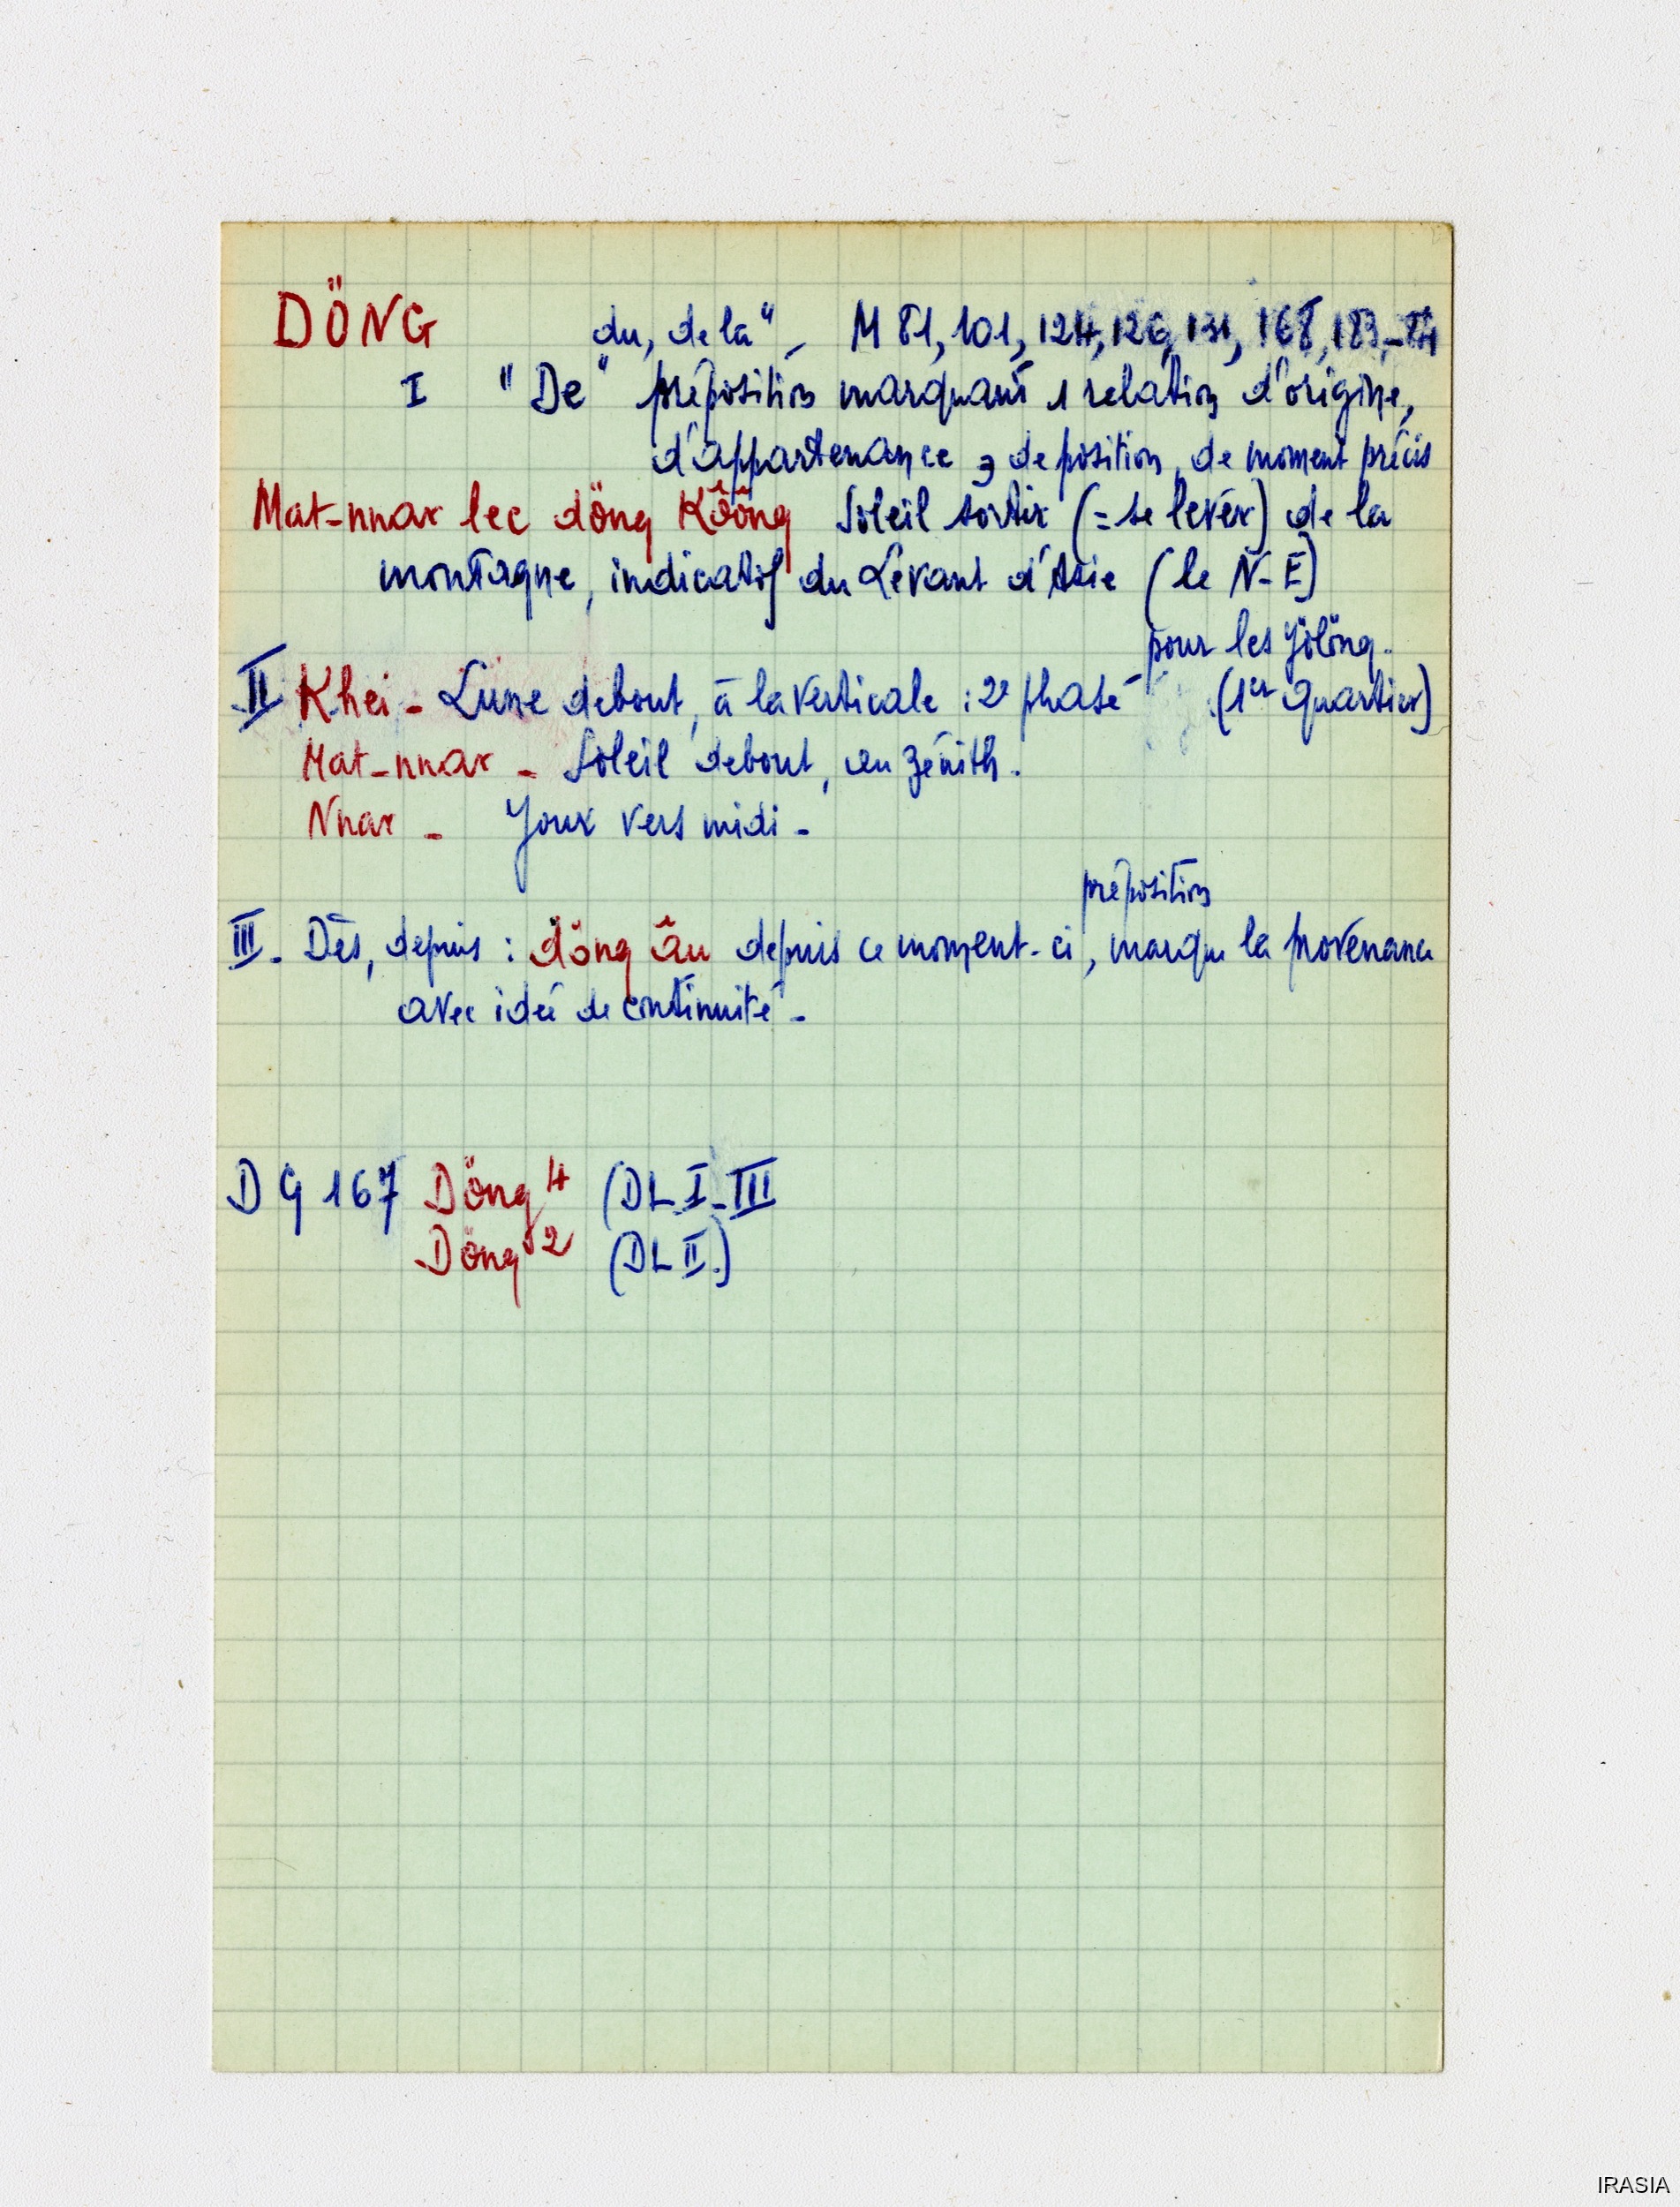 DÖNG du, de la" - M 81, 101, 124, 126, 131, 168, 183-84
I "De" préposition marquant 1 relation d'origine,
d'appartenance, de position, de moment précis
Mat-nnar lec döng Kôông Soleil sortir (= se lever) de la
montagne, indicatif du Levant d'Asie (le N-E)
pour les Jölöng.
II Khei - Lune debout, à la verticale : 2e phase (1er quartier)
Mat-nnar - Soleil debout, au zénith.
Nnar - Jour vers midi -
préposition
III. Dès, depuis : döng âu depuis ce moment-ci, marque la provenance
avec idée de continuité -
DG 167 Döng 4 (DL I-III
Döng 2 (DL II.)
IRASIA